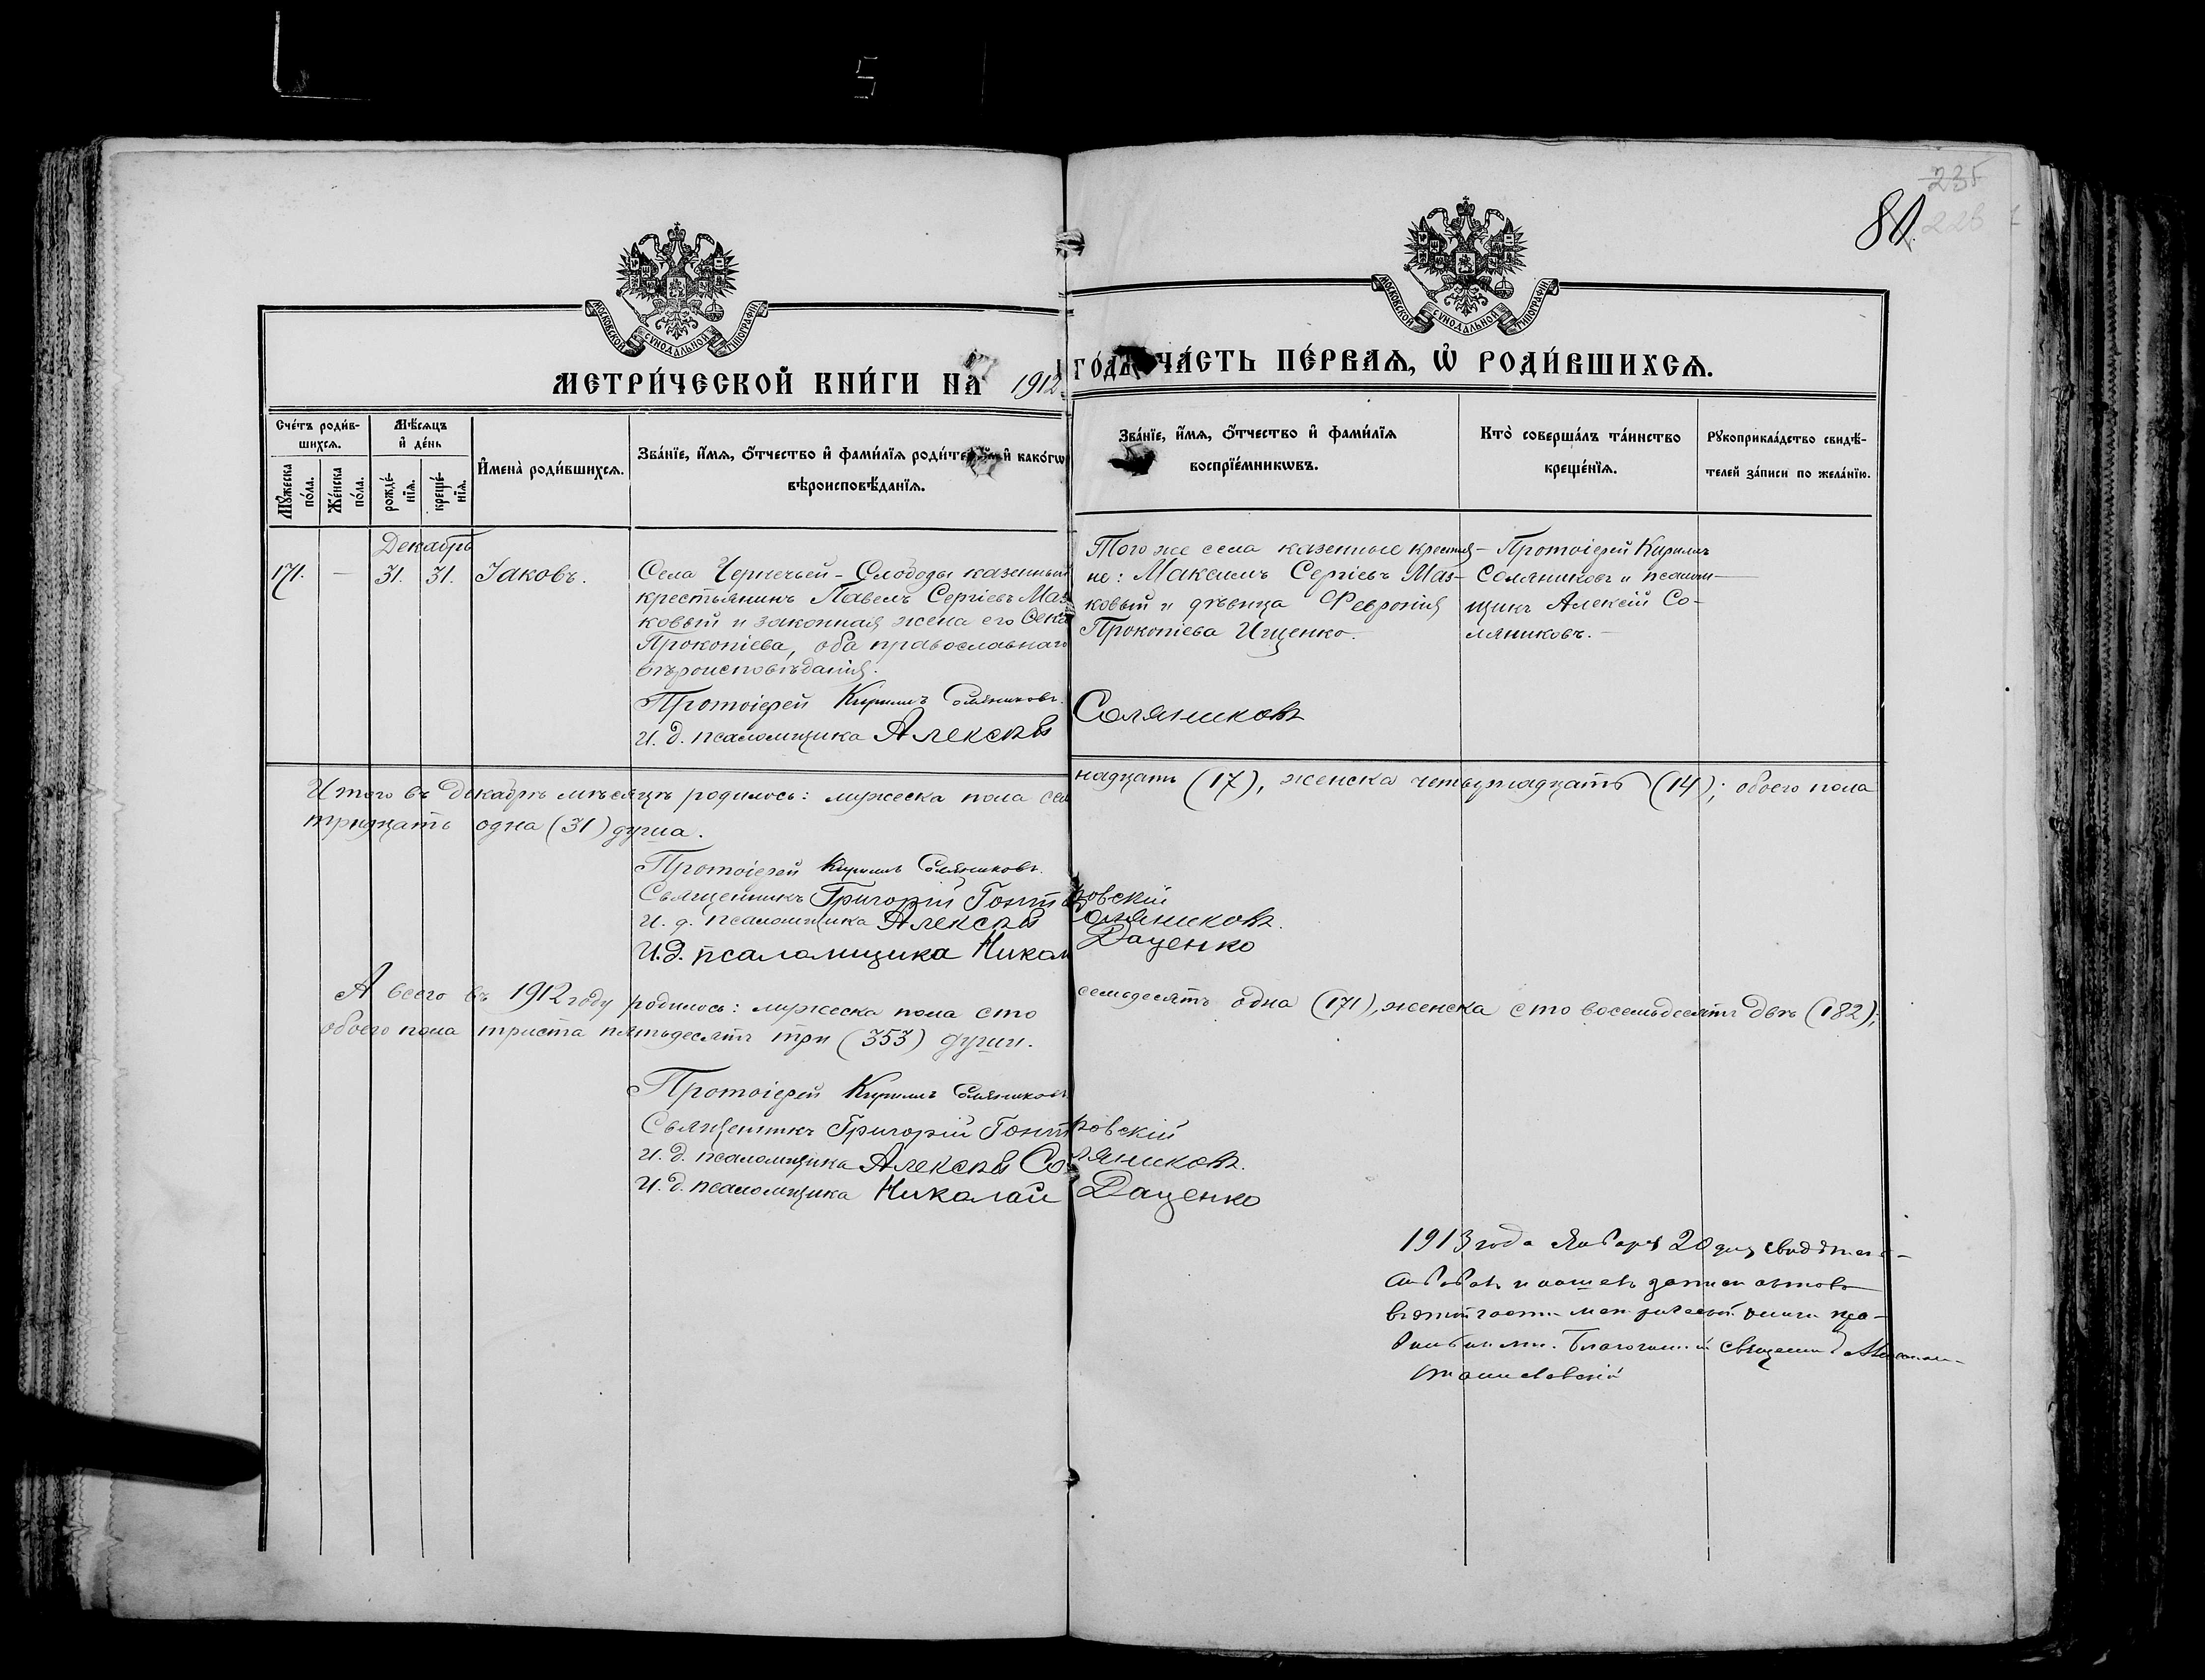 235
80.
МОСКОВСКОЙ СѴНОДАЛЬНОЙ ТИПОГРАФІИ
МОСКОВСКОЙ СѴНОДАЛЬНОЙ ТИПОГРАФІИ
МЕТРИ́ЧЕСКОЙ КНИ́ГИ НА 1912 ГО́ДЪ ЧА́СТЬ ПЕ́РВАѦ, Ѡ҆ РОДИ́ВШИХСѦ.
Сче́тъ роди́в-
шихсѧ.
Мꙋ́жеска по́ла.
Же́нска по́ла.
Мѣ́сѧцъ
и҆ де́нь
рожде́-
нїѧ.
креще́-
нїѧ.
И҆мена̀ роди́вшихсѧ.
Зва́нїе, и҆́мѧ, ѻ҆́тчество и҆ фами́лїѧ роди́телей и҆ како́гѡ
вѣроисповѣ́данїѧ.
Зва́нїе, и҆́мѧ, ѻ҆́тчество и҆ фами́лїѧ
воспрїе́мникѡвъ.
Кто̀ соверша́лъ та́инство
креще́нїѧ.
Рꙋкоприкла́дство свидѣ́-
телей за́писи по жела́нїю.
Декабрь
171. — 31. 31. Іаковъ.
Села Чернечьей-Слободы казенный
крестьянинъ Павелъ Сергіевъ Маз-
ковый и законная жена его
Прокопіева, оба православнаго
вѣроисповѣданія.
Протоіерей Кириллъ Соляниковъ.
И. д. псаломщика Алексѣй Соляниковъ
Того же села казенные крестья-
не: Максимъ Сергіевъ Маз-
ковый и дѣвица Февронія
Прокопіева Ищенко.
Протоіерей Кириллъ
Соляниковъ и псалом-
щикъ Алексій Со-
ляниковъ.
Итого въ Декабрѣ мѣсяцѣ родилось: мужеска пола семнадцать (17), женска четырнадцать (14); обоего пола
тридцать одна (31) душа.
Протоіерей Кириллъ Соляниковъ.
Священникъ Григорій
И. д. псаломщика Алексѣй Соляниковъ.
И. д. псаломщика Никол Даценко
А всего въ 1912 году родилось: мужеска пола сто семьдесятъ одна (171), женска сто восемьдесятъ двѣ (182);
обоего пола триста пятьдесятъ три (353) души.
Протоіерей Кириллъ Соляниковъ
Священникъ Григорій
И. д. псаломщика Алексѣй Соляниковъ.
И. д. псаломщика Николай Даценко
1913 года Января 20 дня
записи актовъ
въ этой части метрической книги пра-
вильными. Благочинный Священник